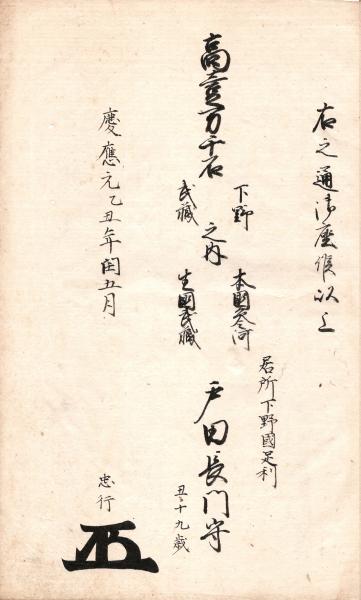 右之通御座候以上
高壹万千石
下野
武蔵
之内
本國三河
生國武蔵
居所下野國足利
戸田長門守
丑三十九歳
慶應元乙丑年閏五月
忠行